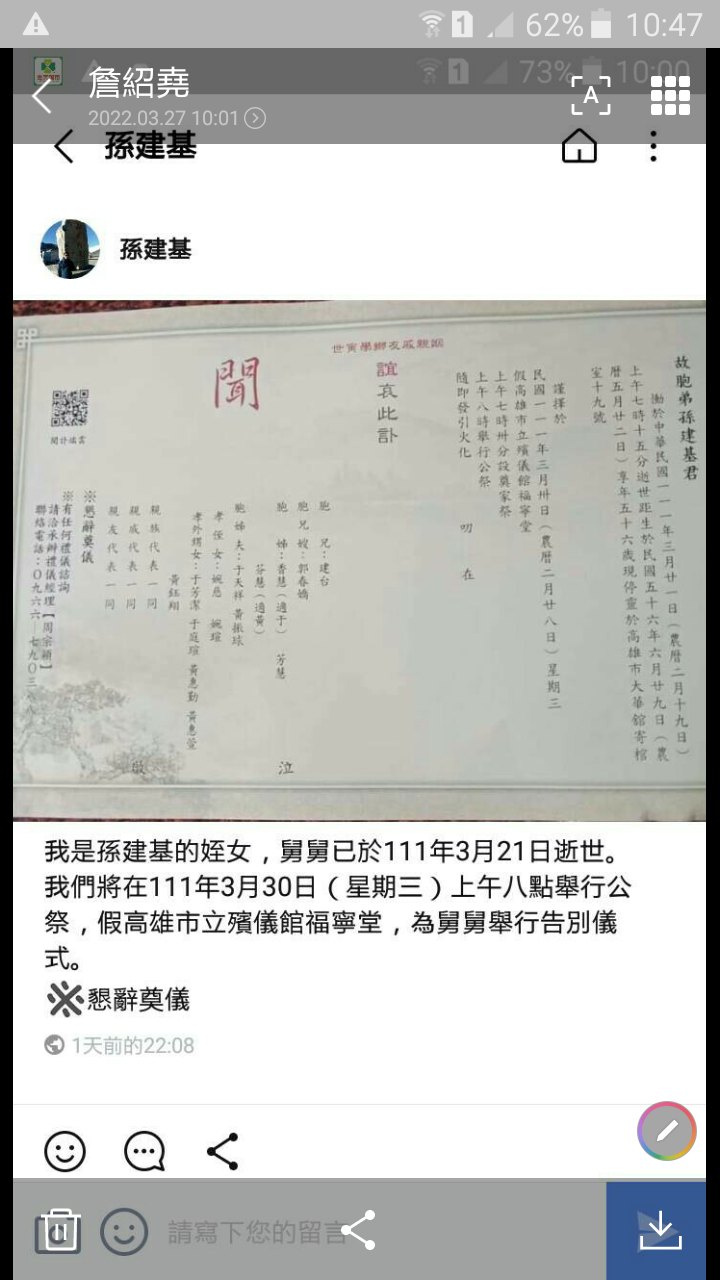 62% 10:47
73% 10:00
詹紹堯
2022.03.27 10:01
A
孫建基
孫建基
故胞弟孫建基君
慟於中華民國一一一年三月廿一日（農曆二月十九日）
上午七時十五分逝世距生於民國五十六年六月廿九日（農
曆五月廿二日）享年五十六歲現停靈於高雄市大華館寄棺
室十九號
謹擇於
民國一一一年三月卅日（農曆二月廿八日）星期三
假高雄市立殯儀館福寧堂
上午七時卅分設奠家祭
上午八時舉行公祭
隨即發引火化
叨在
姻親戚友鄉學寅世
誼
哀此訃
聞
胞兄：建台
胞兄嫂：郭春嬌
胞姊：香慧（適于） 芳慧
芬慧（適黃）
胞姊夫：于天祥 黃振球
孝姪女：婉慈 婉瑄
孝外甥女：于芳潔 于庭瑄 黃惠勤 黃惠瑩
黃鈺翔
泣
親族代表一同
親戚代表一同
親友代表一同
啟
※懇辭奠儀
※有任何禮儀諮詢
請洽承辦禮儀經理【周宗穎】
聯絡電話：０９６６
雲端訃聞
我是孫建基的姪女，舅舅已於111年3月21日逝世。
我們將在111年3月30日（星期三）上午八點舉行公
祭，假高雄市立殯儀館福寧堂，為舅舅舉行告別儀
式。
※懇辭奠儀
1天前的22:08
請寫下您的留言